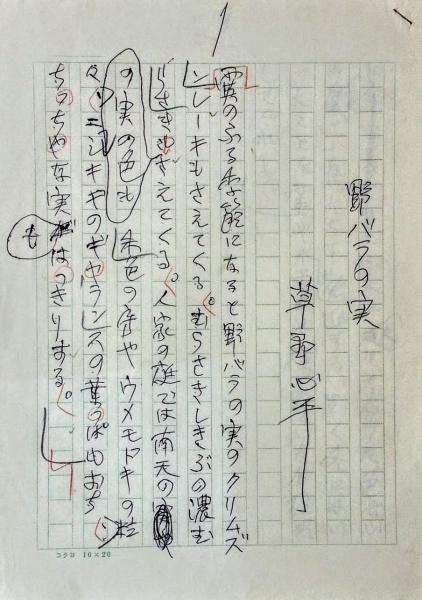 1
野バラの実
草野心平
霙のふる季節になると野バラの実のクリムズ
ンレーキもさえてくる。むらさきしきぶの濃む
らさきもさえてくる。人家の庭では南天の
の実の色も朱色の度や、ウメモドキの粒
々、ニシキギのギャランスの葉っぱもおち
ちっちゃな実もはっきりする。
コクヨ 10×20